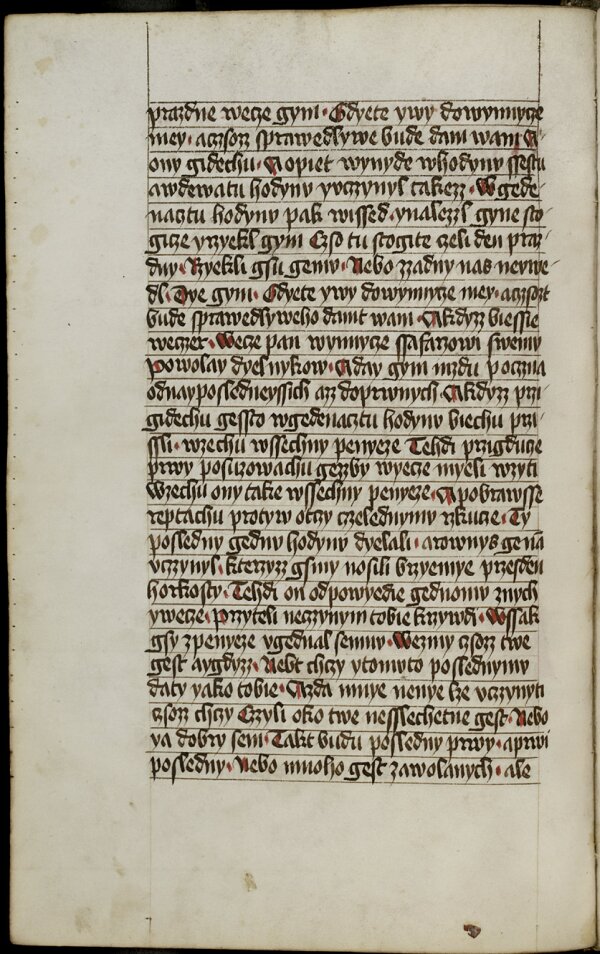 prazdne wecze gym · Gdyete ywy dowynnycze
mey · aczsozz sprawedlywe bude dam wam A
ony gidechu · A opiet wynyde whodynu ssestu
awdewatu hodynu yvczynyl takezz · W gede-
nacztu hodynu pak wissed · ynalezzl gyne sto-
gicze yrzyekl gym Czso tu stogite czeli den praz-
dny · Rzyekli gsu gemu · Nebo zzadny nas neywe-
dl · Dye gym · Gdyete ywy dowynnycze mey · aczsozt
bude sprawedlyweho damt wam · A kdyzz biessie
weczer · Wecze pan wynnycze ssafarzowi swemu
Powolay dyelnykow · A day gym mzdu poczna
odnayposledneyssich azz doprwnych · A kdyzz przi-
gidechu gessto wgedenacztu hodynu biechu przi-
ssli · wzechu wssechny penyeze Tehdi przigducze
prwy posuzowachu gezzby wyecze myeli wzyti
Wzechu ony takie wssechny penyeze · A pobrawsse
reptachu protyw otczy czelednymu rzkucze · Ty
posledny gednu hodynu dyelali · arownys ge nā
vczynyl · kterzyzz gsmy nosili brzyemye przesden
horkosty · Tehdi on odpowyedie gednomu znych
ywecze · Przyteli neczynym tobie krzywdi · Wssak
gsy zpenyeze ygednal semnu · Wezmy czsozz twe
gest aygdyzz · Nebt chczy ytomuto poslednymu
daty yako tobie · Azda mnye nenye lze vczynyti
czsozz chczy Czyli oko twe nesslechetne gest · Nebo
ya dobry sem · Takt budu posledny prwy · aprwi
posledny · Nebo mnoho gest zawolanych · ale